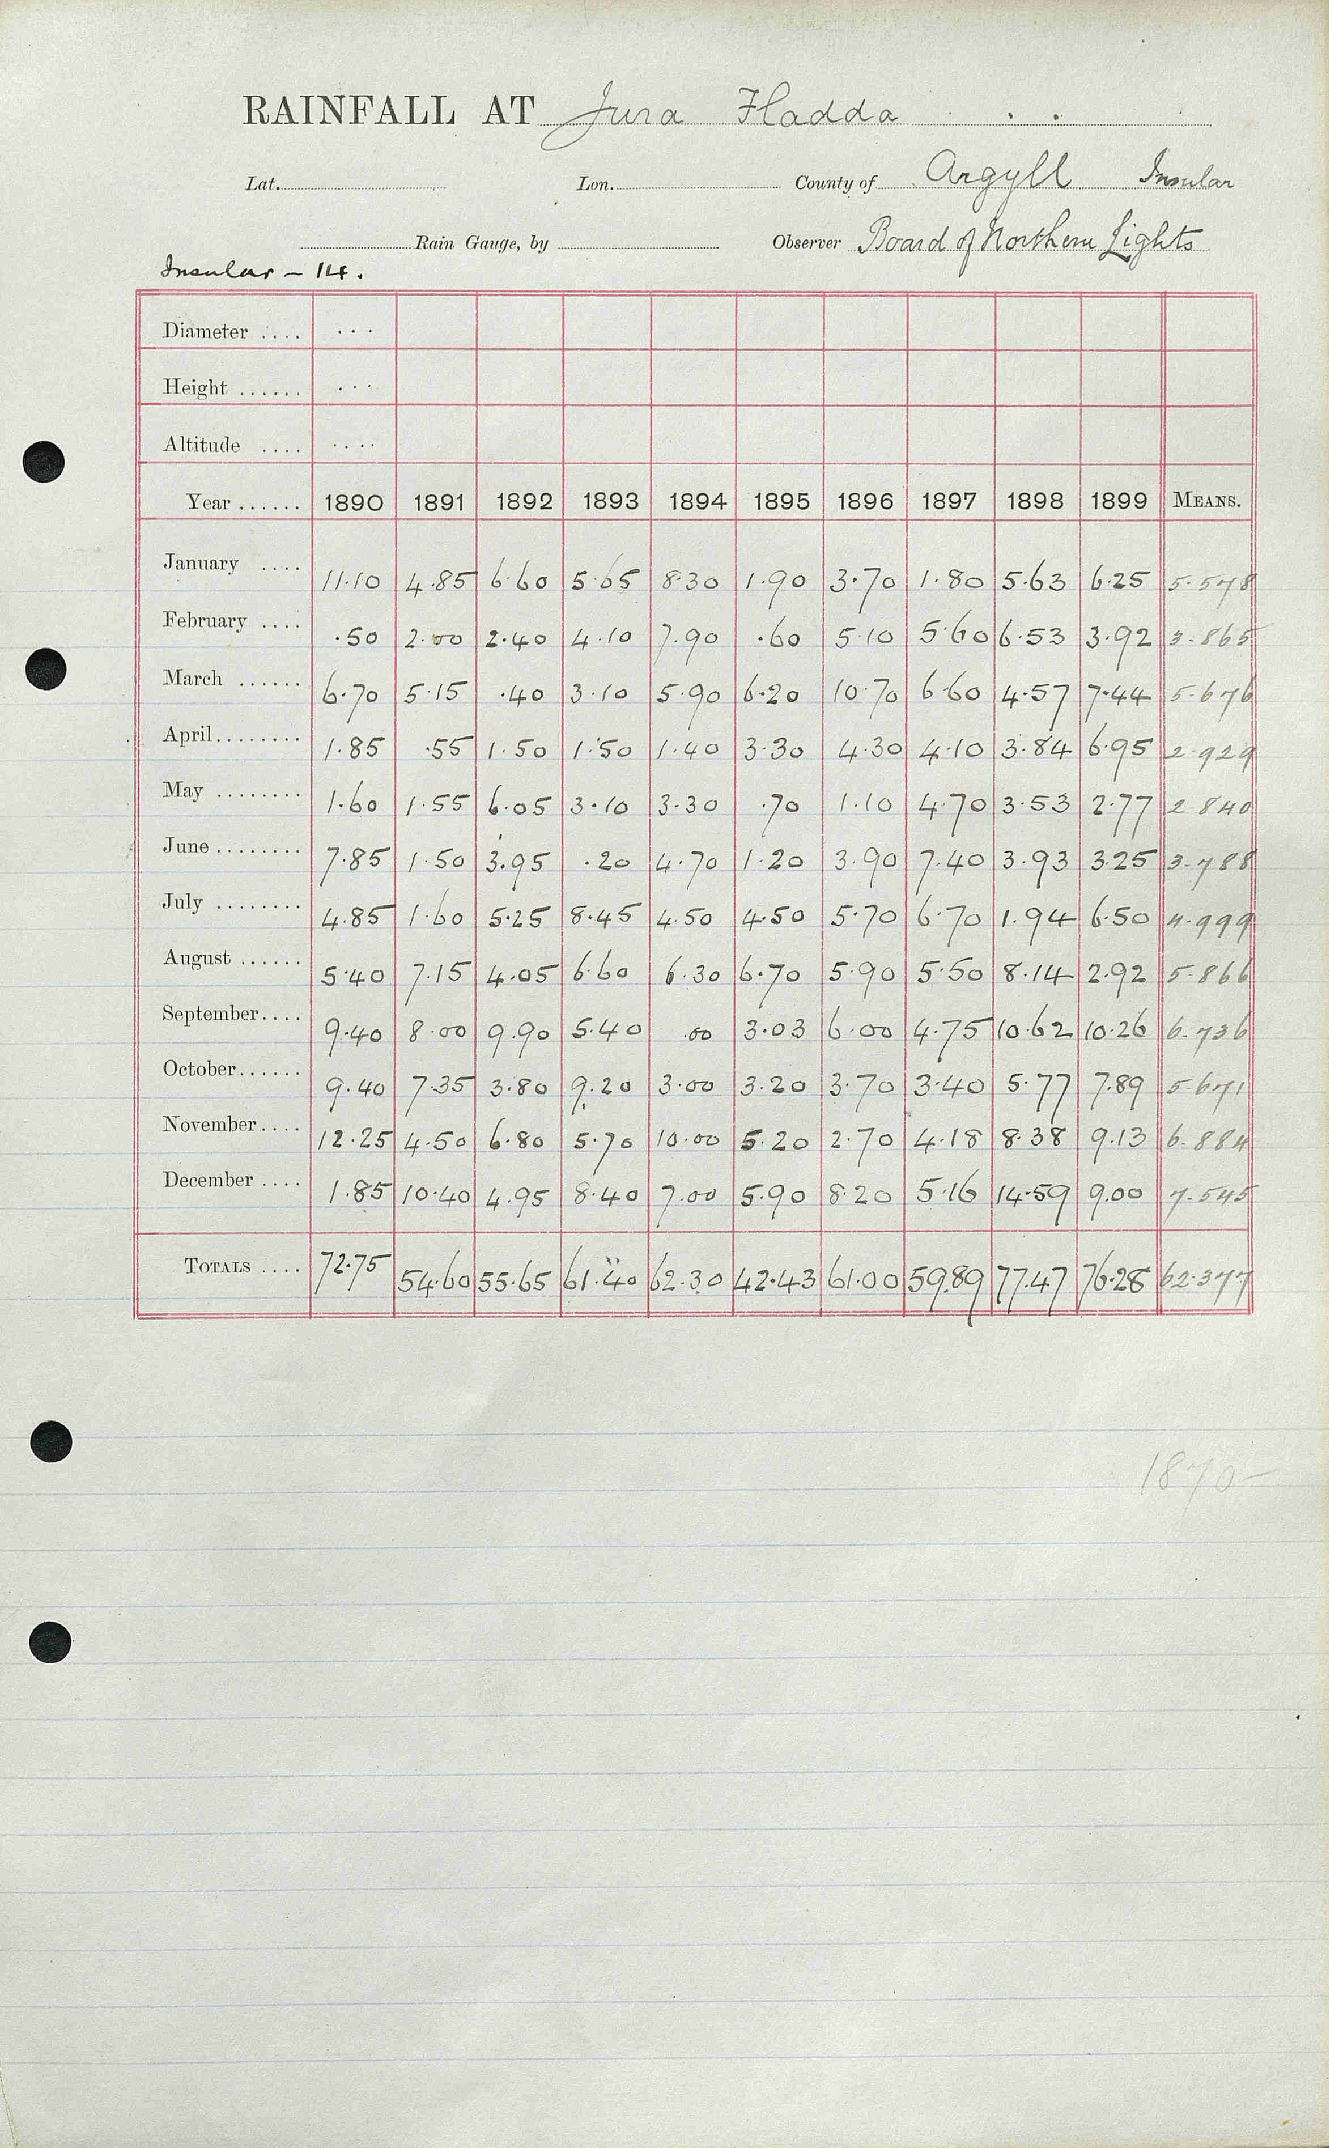 RAINFALL AT Jura Fladda . .
Lat. Lon. County of Argyll Insular
Rain Gauge, by Observer Board of Northern Lights
Insular - 14.
Diameter .... ...
Height ...... ...
Altitude .... ....
Year ...... 1890 1891 1892 1893 1894 1895 1896 1897 1898 1899 MEANS.
January .... 11.10 4.85 6.60 5.65 8.30 1.90 3.70 1.80 5.63 6.25 5.578
February .... .50 2.00 2.40 4.10 7.90 .60 5.10 5.60 6.53 3.92 3.865
March ...... 6.70 5.15 .40 3.10 5.90 6.20 10.70 6.60 4.57 7.44 5.676
April........ 1.85 .55 1.50 1.50 1.40 3.30 4.30 4.10 3.84 6.95 2.929
May ........ 1.60 1.55 6.05 3.10 3.30 .70 1.10 4.70 3.53 2.77 2.840
June ........ 7.85 1.50 3.95 .20 4.70 1.20 3.90 7.40 3.93 3.25 3.788
July ........ 4.85 1.60 5.25 8.45 4.50 4.50 5.70 6.70 1.94 6.50 4.999
August ...... 5.40 7.15 4.05 6.60 6.30 6.70 5.90 5.50 8.14 2.92 5.866
September.... 9.40 8.00 9.90 5.40 .00 3.03 6.00 4.75 10.62 10.26 6.736
October...... 9.40 7.35 3.80 9.20 3.00 3.20 3.70 3.40 5.77 7.89 5.671
November.... 12.25 4.50 6.80 5.70 10.00 5.20 2.70 4.18 8.38 9.13 6.884
December .... 1.85 10.40 4.95 8.40 7.00 5.90 8.20 5.16 14.59 9.00 7.545
TOTALS .... 72.75 54.60 55.65 61.40 62.30 42.43 61.00 59.89 77.47 76.28 62.377
1870-